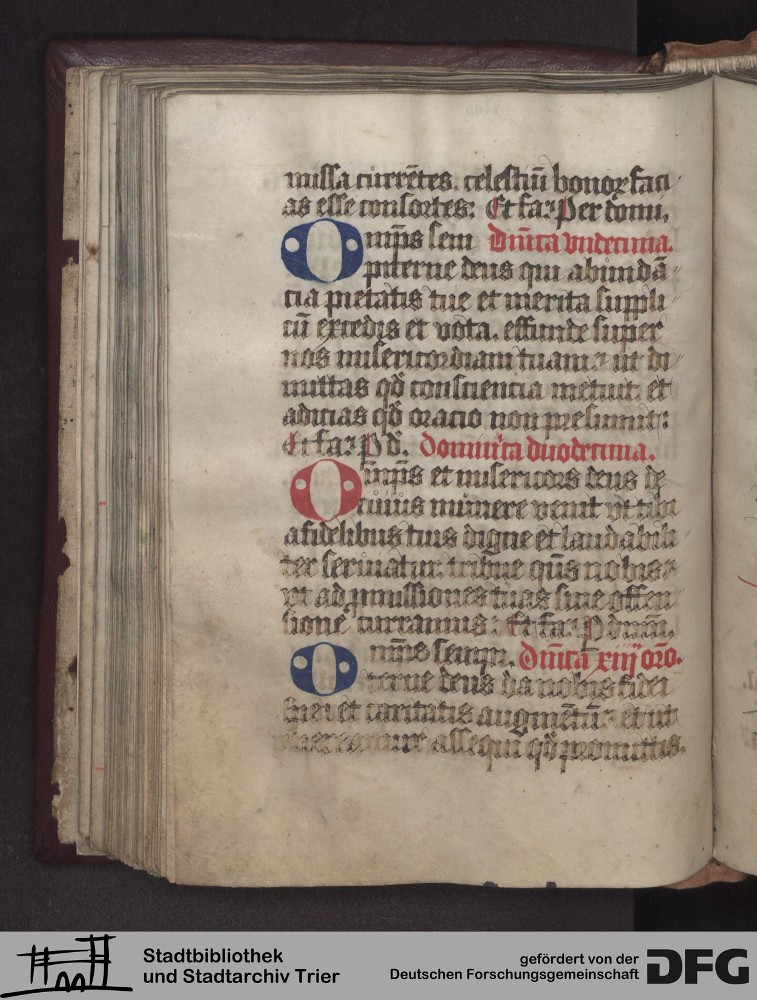 missa currētes. celestiū bonoꝝ faci
as esse consortes: Et fa⁊ Per domi.
Omp̄s sem Dn̄ica vndecima.
piterne deus qui abundā
cia pietatis tue et merita suppli
cū excedis et vota. effunde super
nos misericordiam tuam: ut di
mittas qd̄ consciencia metuit. et
adicias qd̄ oracio non presumit:
Et fa⁊ P d. Dominica duodecima.
Omīps et misericors deus de
cuius munere venit vt tibi
a fidelibus tuis digne et laudabili
ter seruiatur. tribue qūs nobis:
vt ad ꝓmissiones tuas sine offen
sione curramus: Et fa⁊ P dnm̄.
Omp̄s semp. Dn̄ica xiij oro.
terne deus da nobis fidei
spei et caritatis augmētū: et ut
mereamur assequi qd̄ promittis.
Stadtbibliothek
und Stadtarchiv Trier
gefördert von der
Deutschen Forschungsgemeinschaft DFG